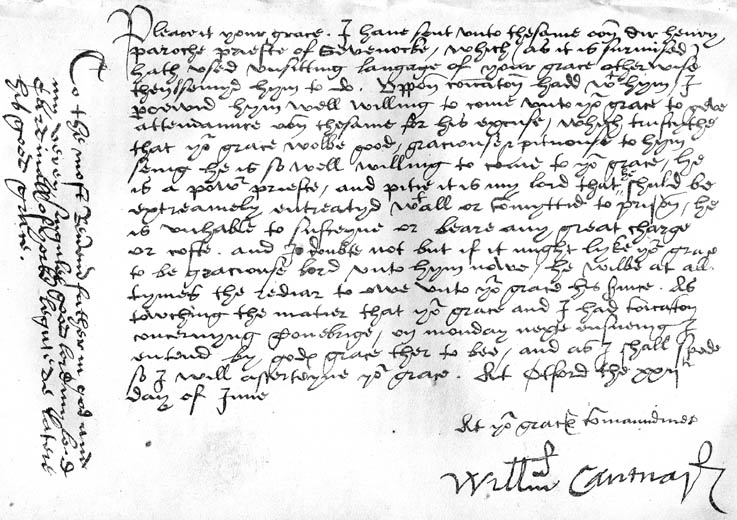 Please it your grace. I haue sent vnto thesame oon Sir henry
paroche prieste of Sevenocke, which as it is surmised
hath vsed vnfitting langage of your grace otherwise
then besemyd hym to do. Vppon coicaton hadd wt hym I
perceivid hym well willing to come vnto yor grace to geve
attendaunce vpon thesame for his excuse, which trustithe
that yor grace wolbe good, graciouse & pituouse to hym
seing he is so well willing to come to yor grace, he
is a powr prieste, and pitie it is my lord that he shuld be
extreamely entreatyd wtall or comyttid to prison, he
is vnhable to susteyne or beare any great charge
or coste. and I doubte not but if it might lyke yor grace
to be graciouse lord vnto hym nowe, he wilbe at all
tymes the rediar to owe vnto yor grace his suice. As
towching the matier that yor grace and I had coicaton
concernyng Tonebrige, on monday nexte ensueing I
entend by godes grace ther to bee, and as I shall spede
so I will asserteyne yor grace. At Otford the xxijti
day of June
At yor graces comaundment
Willm Cantuar
To the most Reverend father in god and
my veray singuler good lord my lord
Cardinall of yorke legate de latere
his good grace.